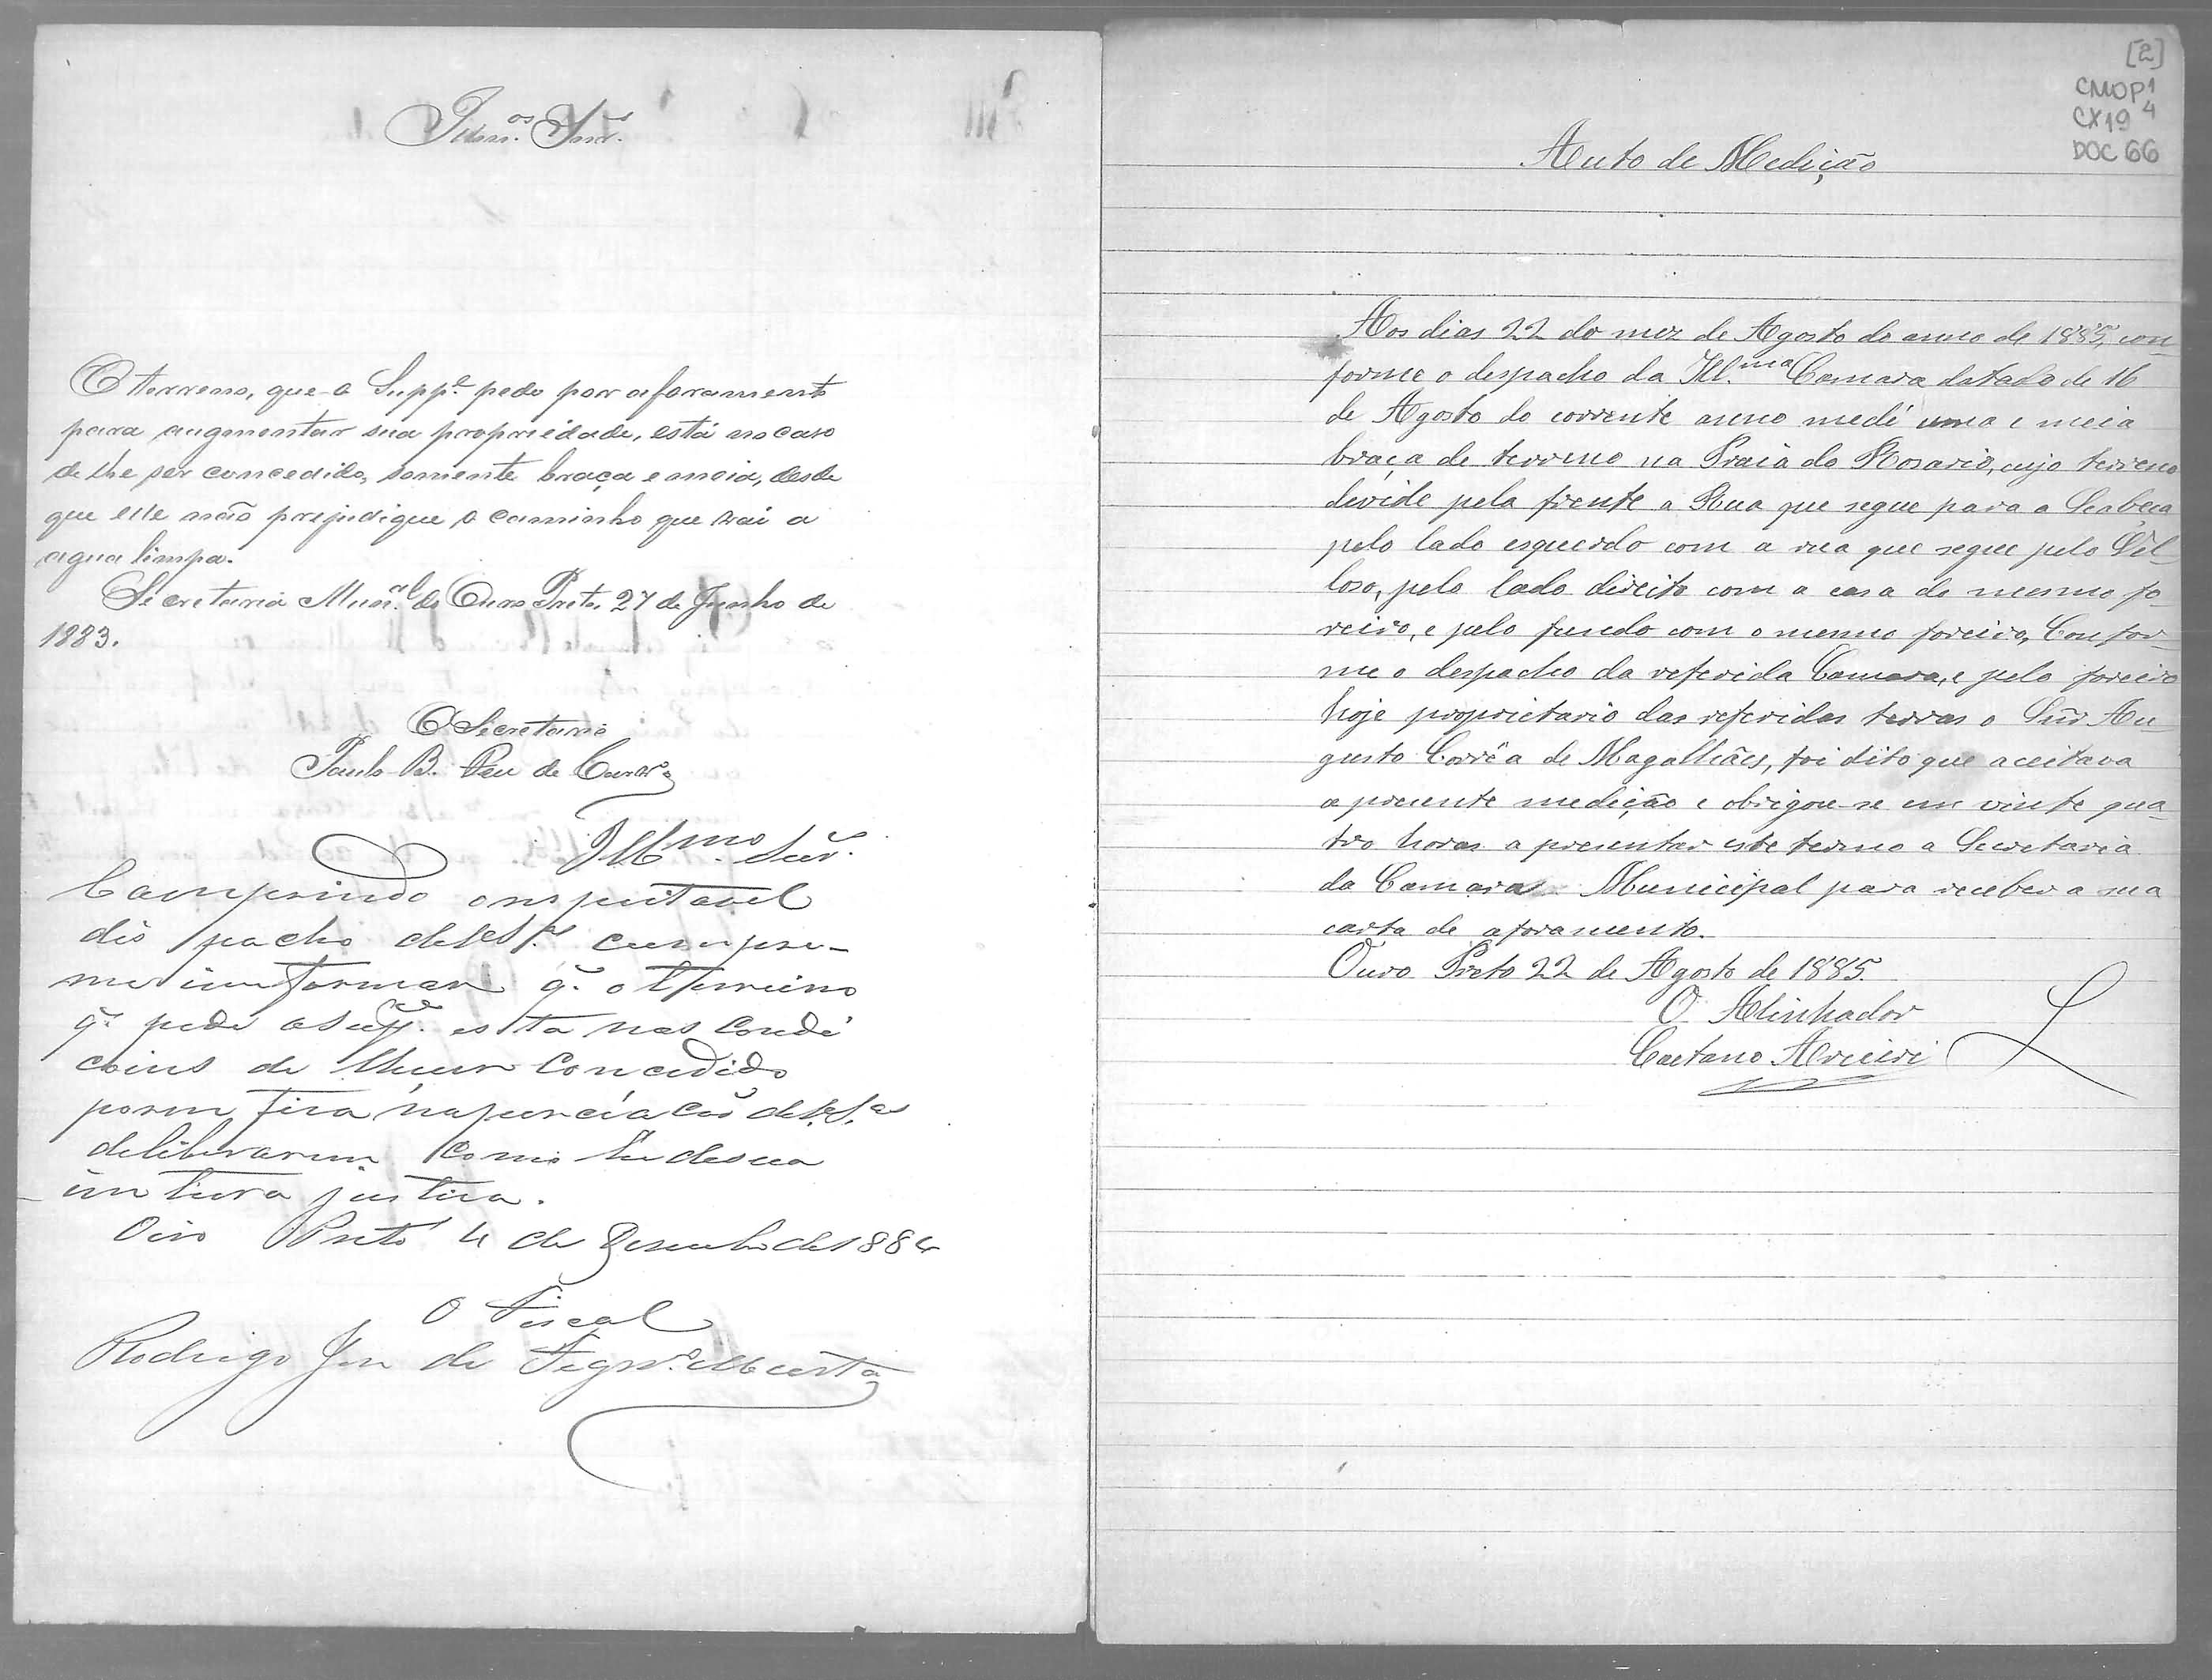 Illmos. Snrs.
O terreno, que o Suppe. pede por aforamento
para augmentar sua propriedade, está no caso
de lhe ser concedido, somente braça e meia, desde
que elle não prejudique o caminho que vai a
agua limpa.
Secretaria Munal. do Ouro Preto, 27 de Junho de
1883.
O Secretario
Paulo B. de
Illmo. Snr.
Comprindo o respeitavel
dispacho de cumpre-
me informar q. o terreino
q. pede a Supp. esta nas Condi
coins de Concedido
porem fica na
deliberarem Como he de sua
inteira justica.
Oiro Preto 4 de Desembro de 1884
O Fiscal
Rodrigo de
[2]
CMOP1
CX19 4
DOC 66
Auto de Medição
Aos dias 22 do mez de Agosto do anno de 1885, con
forme o despacho da Ill.ma Camara datado de 16
de Agosto do corrente anno medi uma e meia
braça de terreno na Praia do Rosario, cujo terreno
devide pela frente a Rua que segue para a
pelo lado esquerdo com a rua que segue pelo Vel
loso, pelo lado direito com a casa do mesmo fo
reiro, e pelo fundo com o mesmo foreiro, Confor
me o despacho da referida Camara, e pelo foreiro
hoje proprietario das referidas terras o Snr Au
gusto Corrêa de Magalhães, foi dito que aceitava
a presente medição e obrigou-se em vinte qua
tro horas a presentar este termo a Secretaria
da Camara Municipal para receber a sua
carta de aforamento.
Ouro Preto 22 de Agosto de 1885.
O Alinhador
Caetano